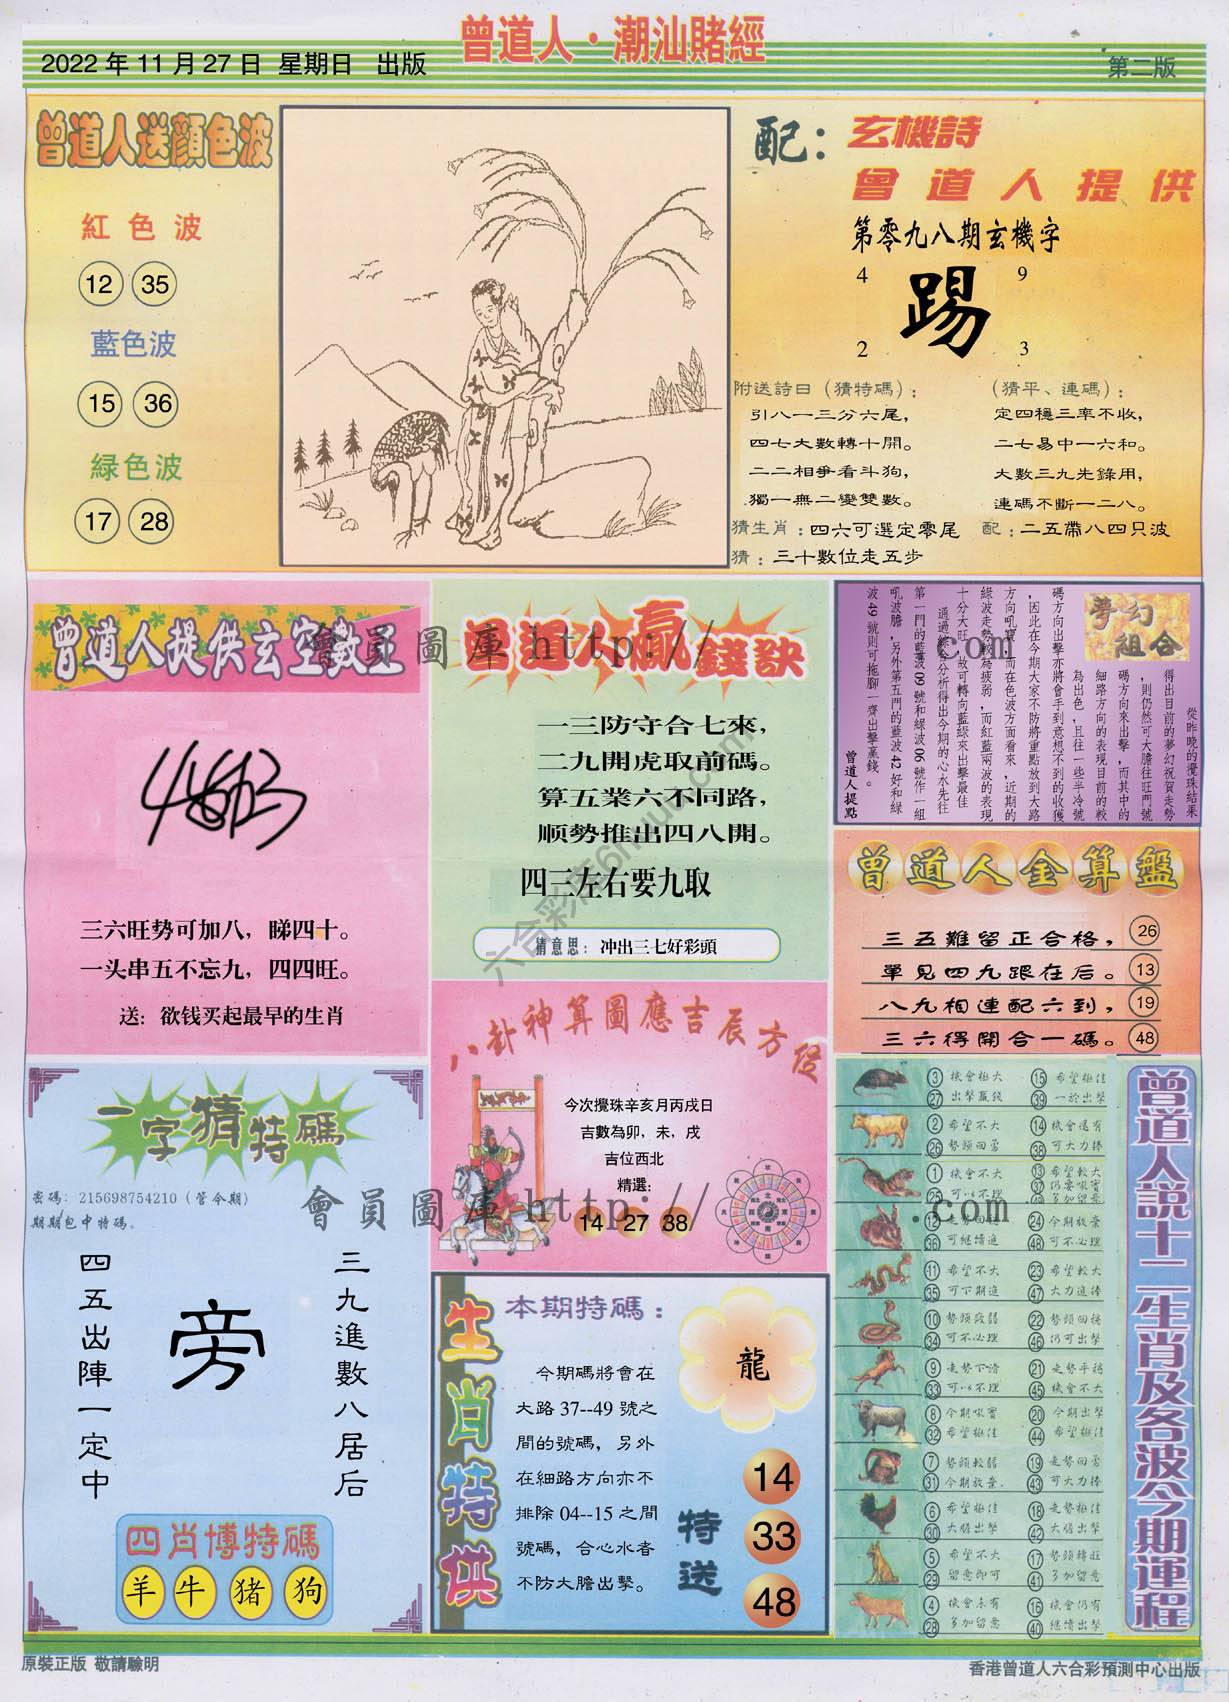 曾道人·潮汕賭經
2022 年 11 月 27 日 星期日 出版
第二版
曾道人送顏色波
紅色波
12 35
藍色波
15 36
緑色波
17 28
配：玄機詩
曾道人提供
第零九八期玄機字
4 9
踢
2 3
附送詩曰（猜特碼）：
引八一三分六尾，
四七大數轉十開。
二二相爭看斗狗，
獨一無二變雙數。
（猜平、連碼）：
定四穩三率不收，
二七易中一六和。
大數三九先錄用，
連碼不斷一二八。
猜生肖：四六可選定零尾 配：二五帶八四只波
猜：三十數位走五步
曾道人提供玄空數王
三六旺势可加八，睇四十。
一头串五不忘九，四四旺。
送：欲钱买起最早的生肖
曾道人贏錢訣
一三防守合七來，
二九開虎取前碼。
算五業六不同路，
顺勢推出四八開。
四三左右要九取
猜意思：冲出三七好彩頭
夢幻組合
從昨晚的攪珠結果
得出目前的夢幻祝賀走勢
，則仍然可大膽往旺門號
碼方向來出擊，而其中的
細路方向的表現目前的較
為出色，且往一些半冷號
碼方向出擊亦將會手到意想不到的收獲
，因此在今期大家不防將重點放到大路
方向吼寶，而在色波方面看來，近期的
綠波走勢較為疲弱，而紅藍兩波的表現
十分大旺，故可轉向藍綠來出擊最佳
通過綜合分析得出今期的心水先往
第一門的藍波 09 號和綠波 06 號作一組
吼波膽，另外第五門的藍波 42 好和綠
波 49 號則可拖腳一齊出擊贏錢。
曾道人提點
曾道人金算盤
三五難留正合格， 26
單見四九跟在后。 13
八九相連配六到， 19
三六得開合一碼。 48
八卦神算圖應吉辰方位
今次攪珠辛亥月丙戌日
吉數為卯，未，戌
吉位西北
精選：
14 27 38
一字猜特碼
密碼：215698754210（管今期）
期期包中特碼。
三九進數八居后
旁
四五出陣一定中
四肖博特碼
羊 牛 猪 狗
生肖特供
本期特碼：
龍
今期碼將會在
大路 37--49 號之
間的號碼，另外
在細路方向亦不
排除 04--15 之間
號碼，合心水者
不防大膽出擊。
特送
14
33
48
曾道人說十二生肖及各波今期運程
3 機會極大 15 希望極佳
27 出擊贏錢 39 一於出擊
2 希望不大 14 機會還有
26 勢頭回勇 38 可大力捧
1 機會不大 13 希望較大
25 可以不理 37 仍要吼實
49 多加留意
12 走勢回旺 24 今期放棄
36 可繼續追 48 可不必理
11 希望不大 23 希望較大
35 可下期追 47 大力追捧
10 勢頭疲弱 22 勢頭回穩
34 可不必理 46 仍可出擊
9 走勢下滑 21 走勢平穩
33 可以不理 45 機會不大
8 今期吼實 20 今期出擊
32 希望極佳 44 希望極佳
7 勢頭較弱 19 走勢回勇
31 今期放棄 43 可大力捧
6 希望極佳 18 走勢極佳
30 大膽出擊 42 大膽出擊
5 希望不大 17 勢頭轉旺
29 留意即可 41 多加留意
4 機會未有 16 機會仍有
28 多加留意 40 繼續出擊
會員圖庫 http:// .com
會員圖庫 http:// .com
原裝正版 敬請驗明
香港曾道人六合彩預測中心出版